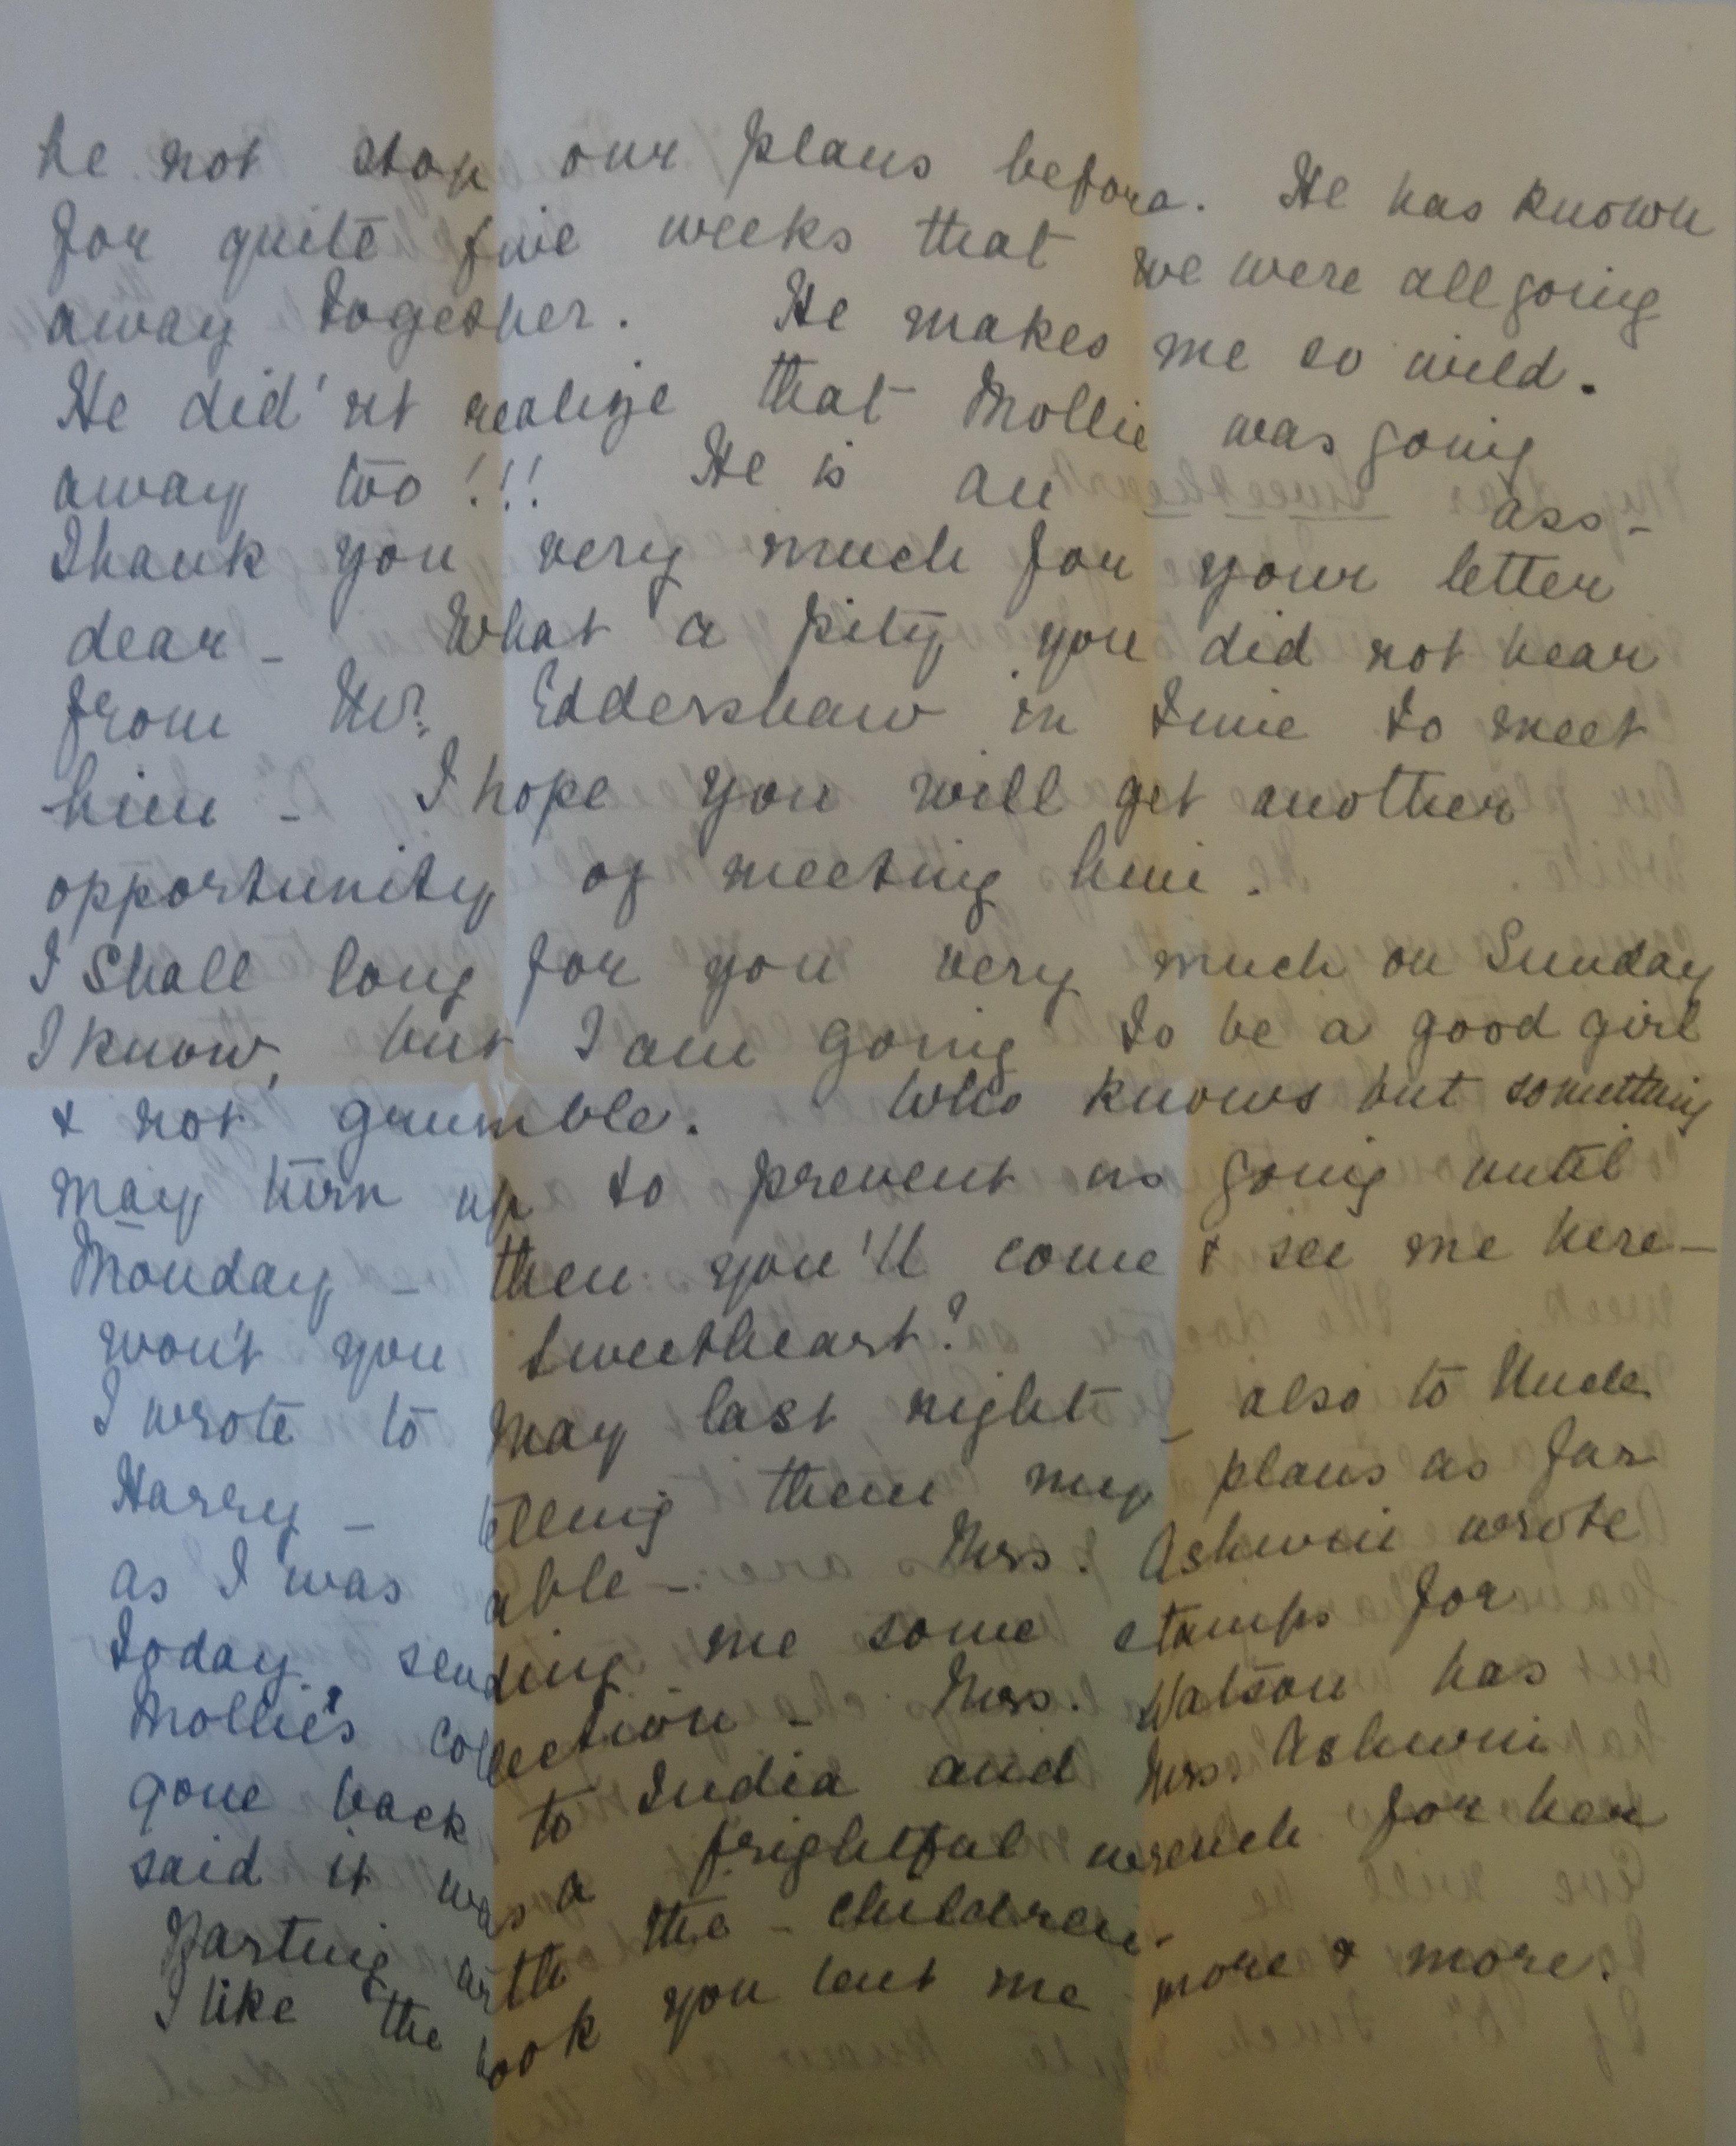 he not stop our plans before. He has known
for quite five weeks that we were all going
away together. He makes me so wild.
He did'nt realize that Mollie was going
away too!!! He is an ass -
Thank you very much for your letter
dear - What a pity you did not hear
from Mr. Eddershaw in time to meet
him - I hope you will get another
opportunity of meeting him.
I shall long for you very much on Sunday
I know, but I am going to be a good girl
& not grumble. Who knows but something
may turn up to prevent us going until
Monday - then you'll come & see me here -
won't you sweetheart?
I wrote to May last night - also to Uncle
Harry - telling them my plans as far
as I was able - Mrs. Ashwin wrote
today sending me some stamps for
Mollie's collection - Mrs. Watson has
gone back to India and Mrs. Ashwin
said it was a frightful wrench for her
parting with the - children -
I like the book you lent me more & more.